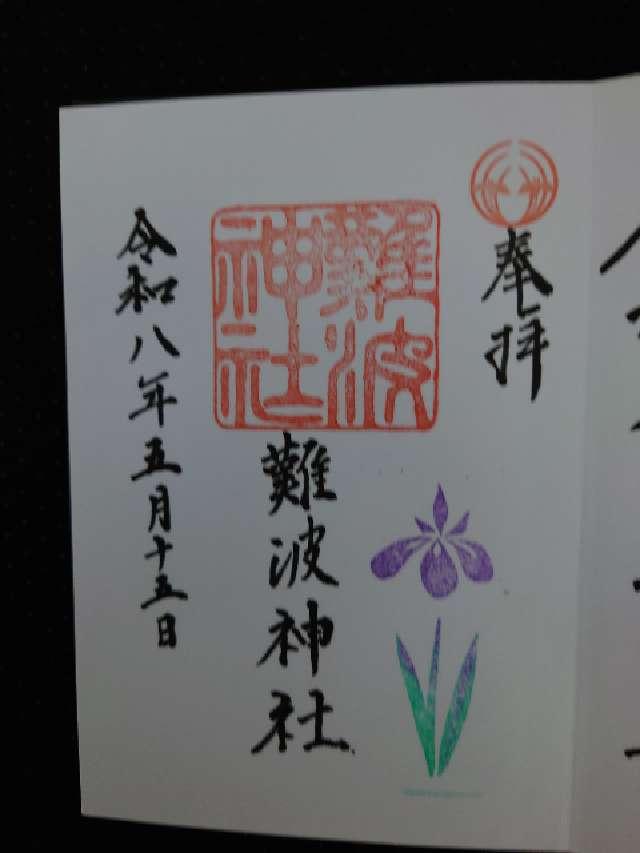 奉拝
難波神社
難波神社
令和八年五月十五日